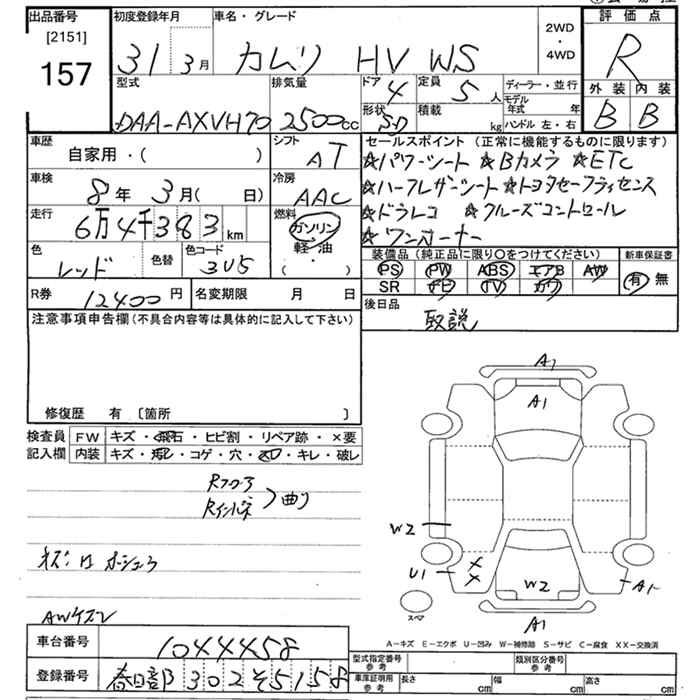 出品番号
[2151]
157
初度登録年月
31 3月
車名・グレード
カムリ HV WS
2WD
・
4WD
評価点
R
外装 内装
B B
型式
DAA-AXVH70
排気量
2500cc
ドア
4
定員
5人
形状
SD
積載
kg
ディーラー・並行
モデル年式 年
ハンドル 左・右
車歴
自家用・( )
シフト
AT
車検
8年 3月( 日)
冷房
AAC
走行
6万4千383km
燃料
ガソリン
軽・油
・
( )
色
レッド
色替
色コード
3U5
R券
12400円
名変期限 月 日
セールスポイント (正常に機能するものに限ります)
☆パワーシート ☆Bカメラ ☆ETC
☆ハーフレザーシート ☆トヨタセーフティセンス
☆ドラレコ ☆クルーズコントロール
☆ワンオーナー
装備品 (純正品に限り○をつけてください)
PS PW ABS エアB AW
SR ナビ TV カワ
新車保証書
有 無
後日品
取説
注意事項申告欄 (不具合内容等は具体的に記入して下さい)
修復歴 有 [箇所 ]
検査員
記入欄
FW キズ・飛石・ヒビ割・リペア跡・×要
内装 キズ・汚レ・コゲ・穴・スレ・キレ・破レ
Rフロア
Rインパネ
曲り
AWキズ
A1
A1
W2
U1
XX
W2
A1
A1
スペア
A-キズ E-エクボ U-凹み W-補修跡 S-サビ C-腐食 XX-交換済
車台番号
1044458
登録番号
春日部 302 そ 5158
型式指定番号
参考
類別区分番号
参考
車庫証明用
参考
長さ cm 幅 cm 高さ cm